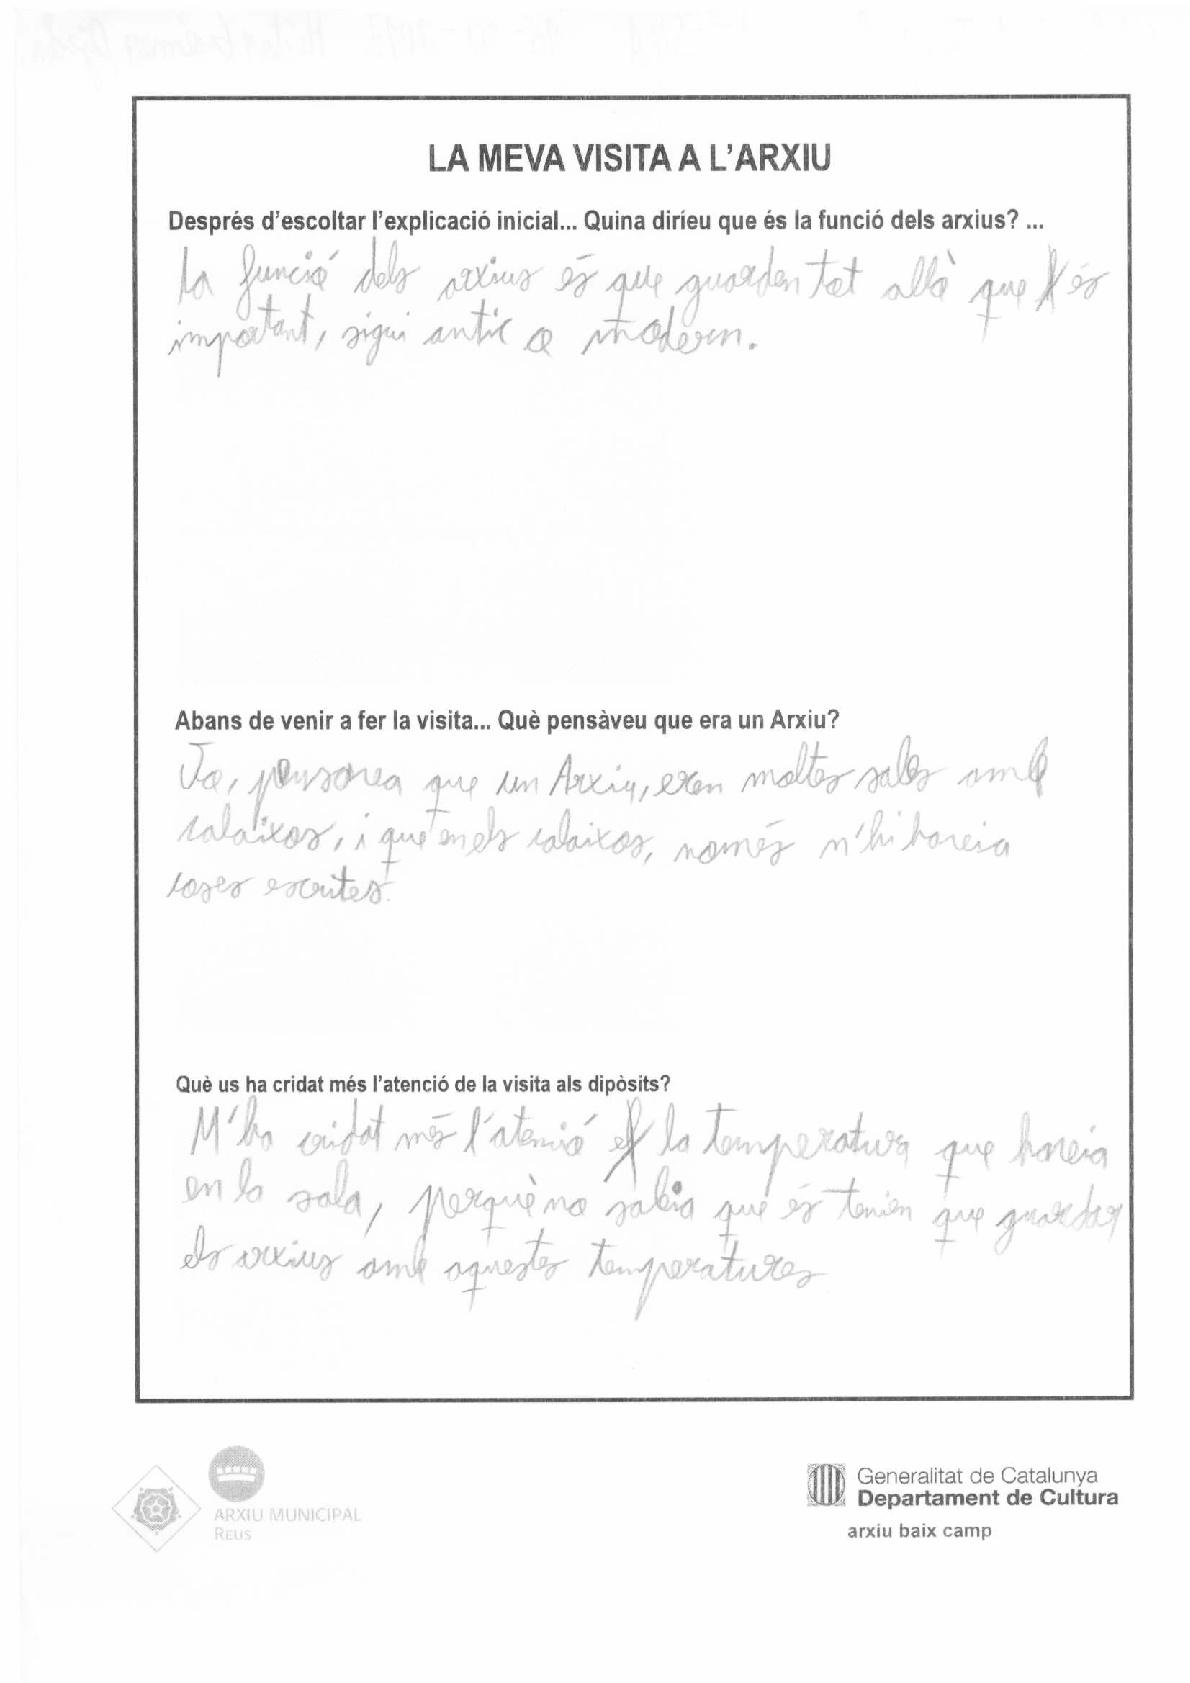 LA MEVA VISITA A L'ARXIU
Després d'escoltar l'explicació inicial... Quina diríeu que és la funció dels arxius? ...
La funció dels arxius és que guarden tot allò que és
important, sigui antic o modern.
Abans de venir a fer la visita... Què pensàveu que era un Arxiu?
Jo, pensava que un Arxiu, eren moltes sales amb
calaixos, i que en els calaixos, només n'hi havia
coses escrites.
Què us ha cridat més l'atenció de la visita als dipòsits?
M'ha cridat més l'atenció la temperatura que havia
en la sala, perquè no sabia que és tenien que guardar
els arxius amb aquestes temperatures
ARXIU MUNICIPAL
REUS
Generalitat de Catalunya
Departament de Cultura
arxiu baix camp